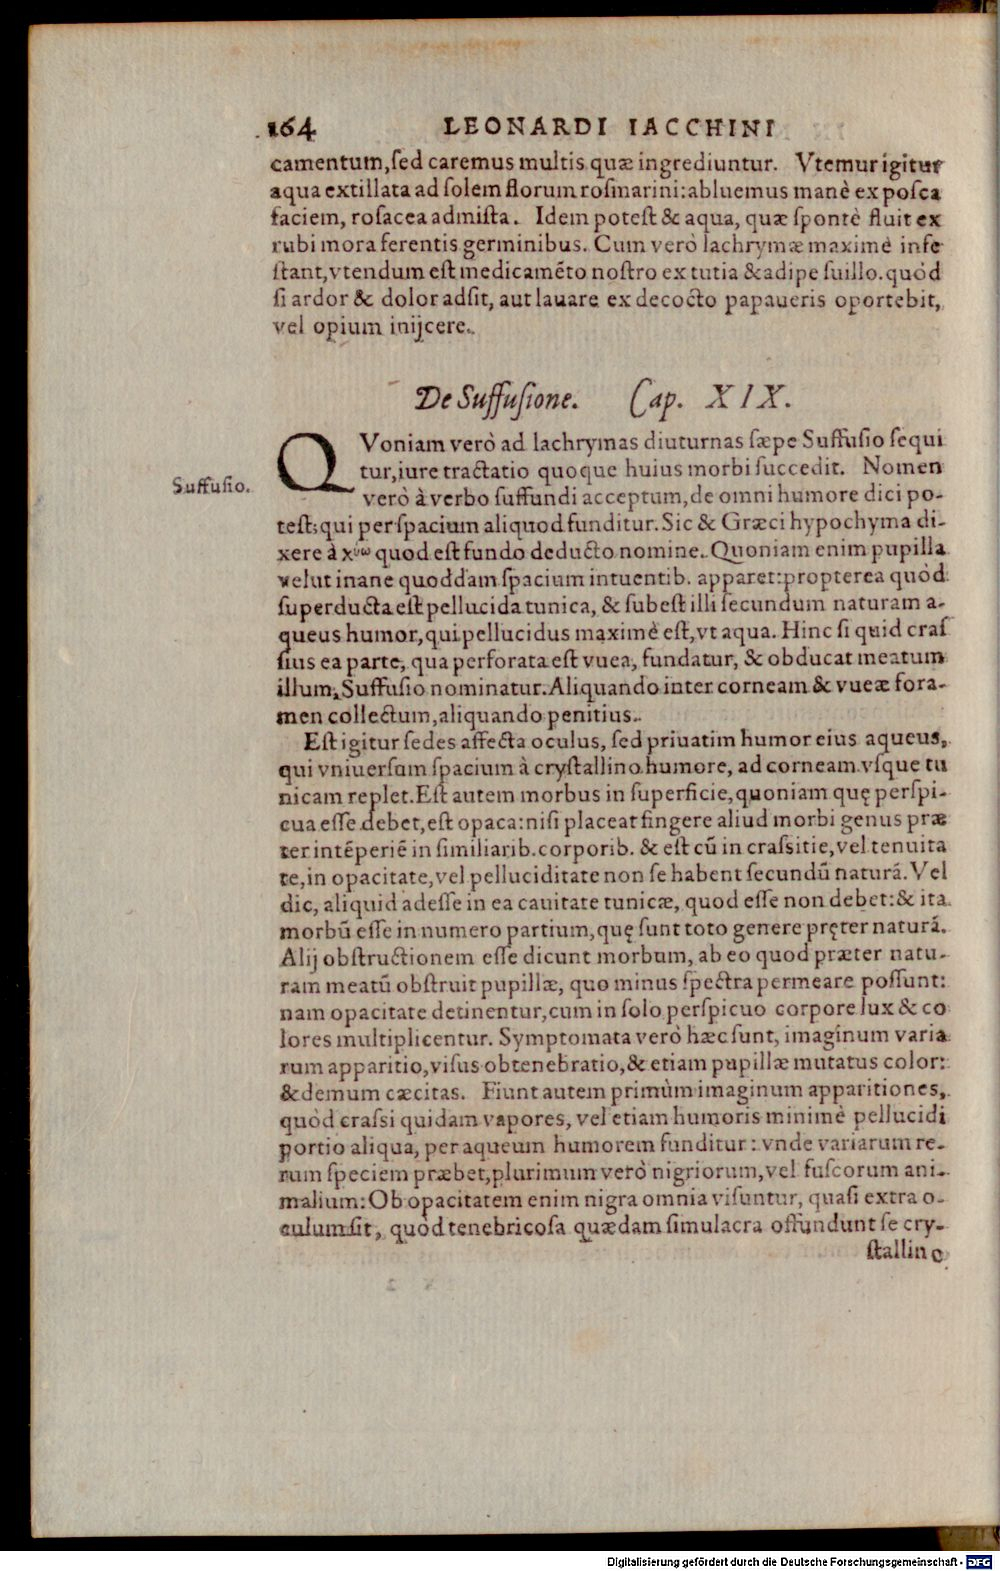 164 LEONARDI IACCHINI
camentum, sed caremus multis quæ ingrediuntur. Vtemur igitur
aqua extillata ad solem florum rosmarini: abluemus manè ex posca
faciem, rosacea admista. Idem potest & aqua, quæ spontè fluit ex
rubi mora ferentis germinibus. Cum verò lachrymæ maximè infe
stant, vtendum est medicamēto nostro ex tutia & adipe suillo. quòd
si ardor & dolor adsit, aut lauare ex decocto papaueris oportebit,
vel opium inijcere.
De Suffusione. Cap. XIX.
QVoniam verò ad lachrymas diuturnas sæpe Suffusio sequi
tur, iure tractatio quoque huius morbi succedit. Nomen
Suffusio.
verò à verbo suffundi acceptum, de omni humore dici po-
test, qui per spacium aliquod funditur. Sic & Græci hypochyma di-
xere à χύω quod est fundo deducto nomine. Quoniam enim pupilla
velut inane quoddam spacium intuentib. apparet: propterea quòd
superducta est pellucida tunica, & subest illi secundum naturam a-
queus humor, qui pellucidus maximè est, vt aqua. Hinc si quid cras
sius ea parte, qua perforata est vuea, fundatur, & obducat meatum
illum, Suffusio nominatur. Aliquando inter corneam & vueæ fora-
men collectum, aliquando penitius.
Est igitur sedes affecta oculus, sed priuatim humor eius aqueus,
qui vniuersum spacium à crystallino humore, ad corneam vsque tu
nicam replet. Est autem morbus in superficie, quoniam quę perspi-
cua esse debet, est opaca: nisi placeat fingere aliud morbi genus præ
ter intēperiē in similiarib. corporib. & est cū in crassitie, vel tenuita
te, in opacitate, vel pelluciditate non se habent secundū naturā. Vel
dic, aliquid adesse in ea cauitate tunicæ, quod esse non debet: & ita
morbū esse in numero partium, quę sunt toto genere pręter naturā.
Alij obstructionem esse dicunt morbum, ab eo quod præter natu-
ram meatū obstruit pupillæ, quo minus spectra permeare possunt:
nam opacitate detinentur, cum in solo perspicuo corpore lux & co
lores multiplicentur. Symptomata verò hæc sunt, imaginum varia
rum apparitio, visus obtenebratio, & etiam pupillæ mutatus color:
& demum cæcitas. Fiunt autem primùm imaginum apparitiones,
quòd crassi quidam vapores, vel etiam humoris minimè pellucidi
portio aliqua, per aqueum humorem funditur: vnde variarum re-
rum speciem præbet, plurimum verò nigriorum, vel fuscorum ani-
malium: Ob opacitatem enim nigra omnia visuntur, quasi extra o-
culum sit, quòd tenebricosa quædam simulacra offundunt se cry-
stallino
Digitalisierung gefördert durch die Deutsche Forschungsgemeinschaft - DFG